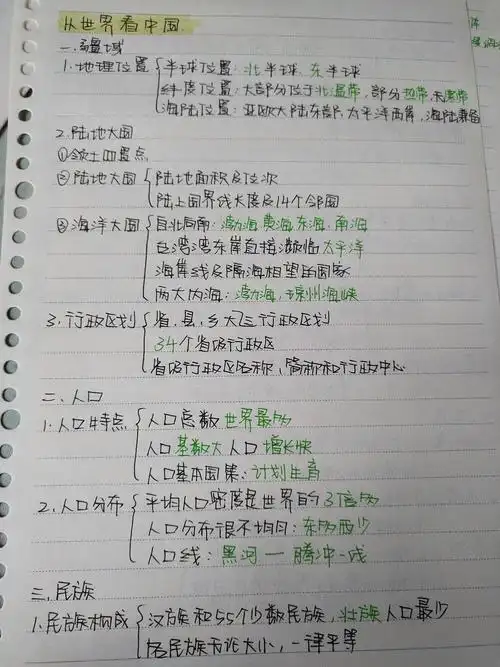 从世界看中国
一.疆域
1.地理位置 半球位置:北半球、东半球
纬度位置:大部分位于北温带,部分热带,无寒带
海陆位置:亚欧大陆东部,太平洋西岸,海陆兼备
2.陆地大国
①领土四至点
②陆地大国 陆地面积及位次
陆上国界线长度及14个邻国
③海洋大国 自北向南:渤海,黄海,东海,南海
台湾湾东岸直接濒临太平洋
海岸线及隔海相望的国家
两大内海:渤海,琼州海峡
3.行政区划 省,县,乡大三行政区划
34个省级行政区
省级行政区名称、简称和行政中心
二.人口
1.人口特点 人口总数世界最多
人口基数大人口增长快
人口基本国策:计划生育
2.人口分布 平均人口密度是世界的3倍多
人口分布很不均匀:东多西少
人口线:黑河一腾冲一线
三.民族
1.民族构成 汉族和55个少数民族,壮族人口最少
各民族无论大小,一律平等